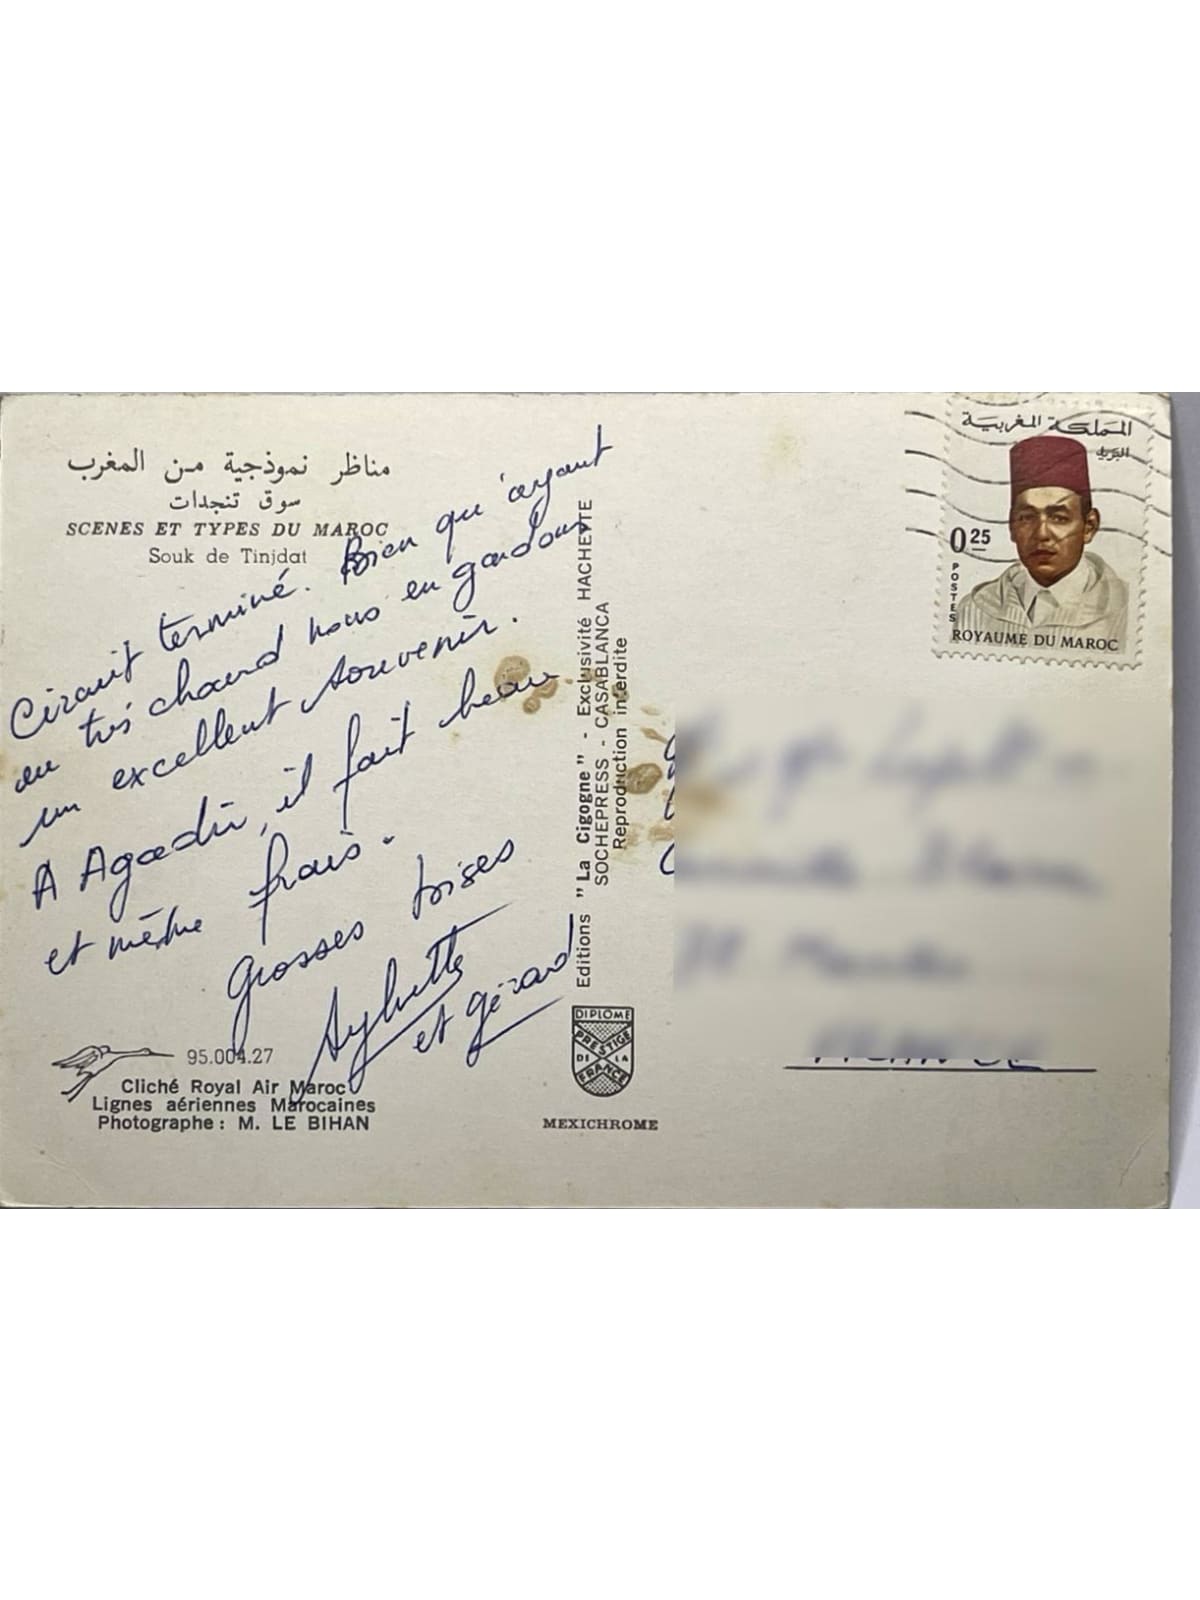 مناظر نموذجية من المغرب
سوق تنجدات
SCENES ET TYPES DU MAROC
Souk de Tinjdat
Circuit terminé. Bien qu'ayant
eu très chaud nous en gardons
un excellent souvenir.
A Agadir, il fait beau
et même frais.
Grosses bises
Sylvette
et Gérard
95.004.27
Cliché Royal Air Maroc
Lignes aériennes Marocaines
Photographe : M. LE BIHAN
Editions "La Cigogne" - Exclusivité HACHETTE
SOCHEPRESS - CASABLANCA
Reproduction interdite
DIPLOME
PRESTIGE
DE LA
FRANCE
MEXICHROME
المملكة المغربية
البريد
0.25
POSTES
ROYAUME DU MAROC